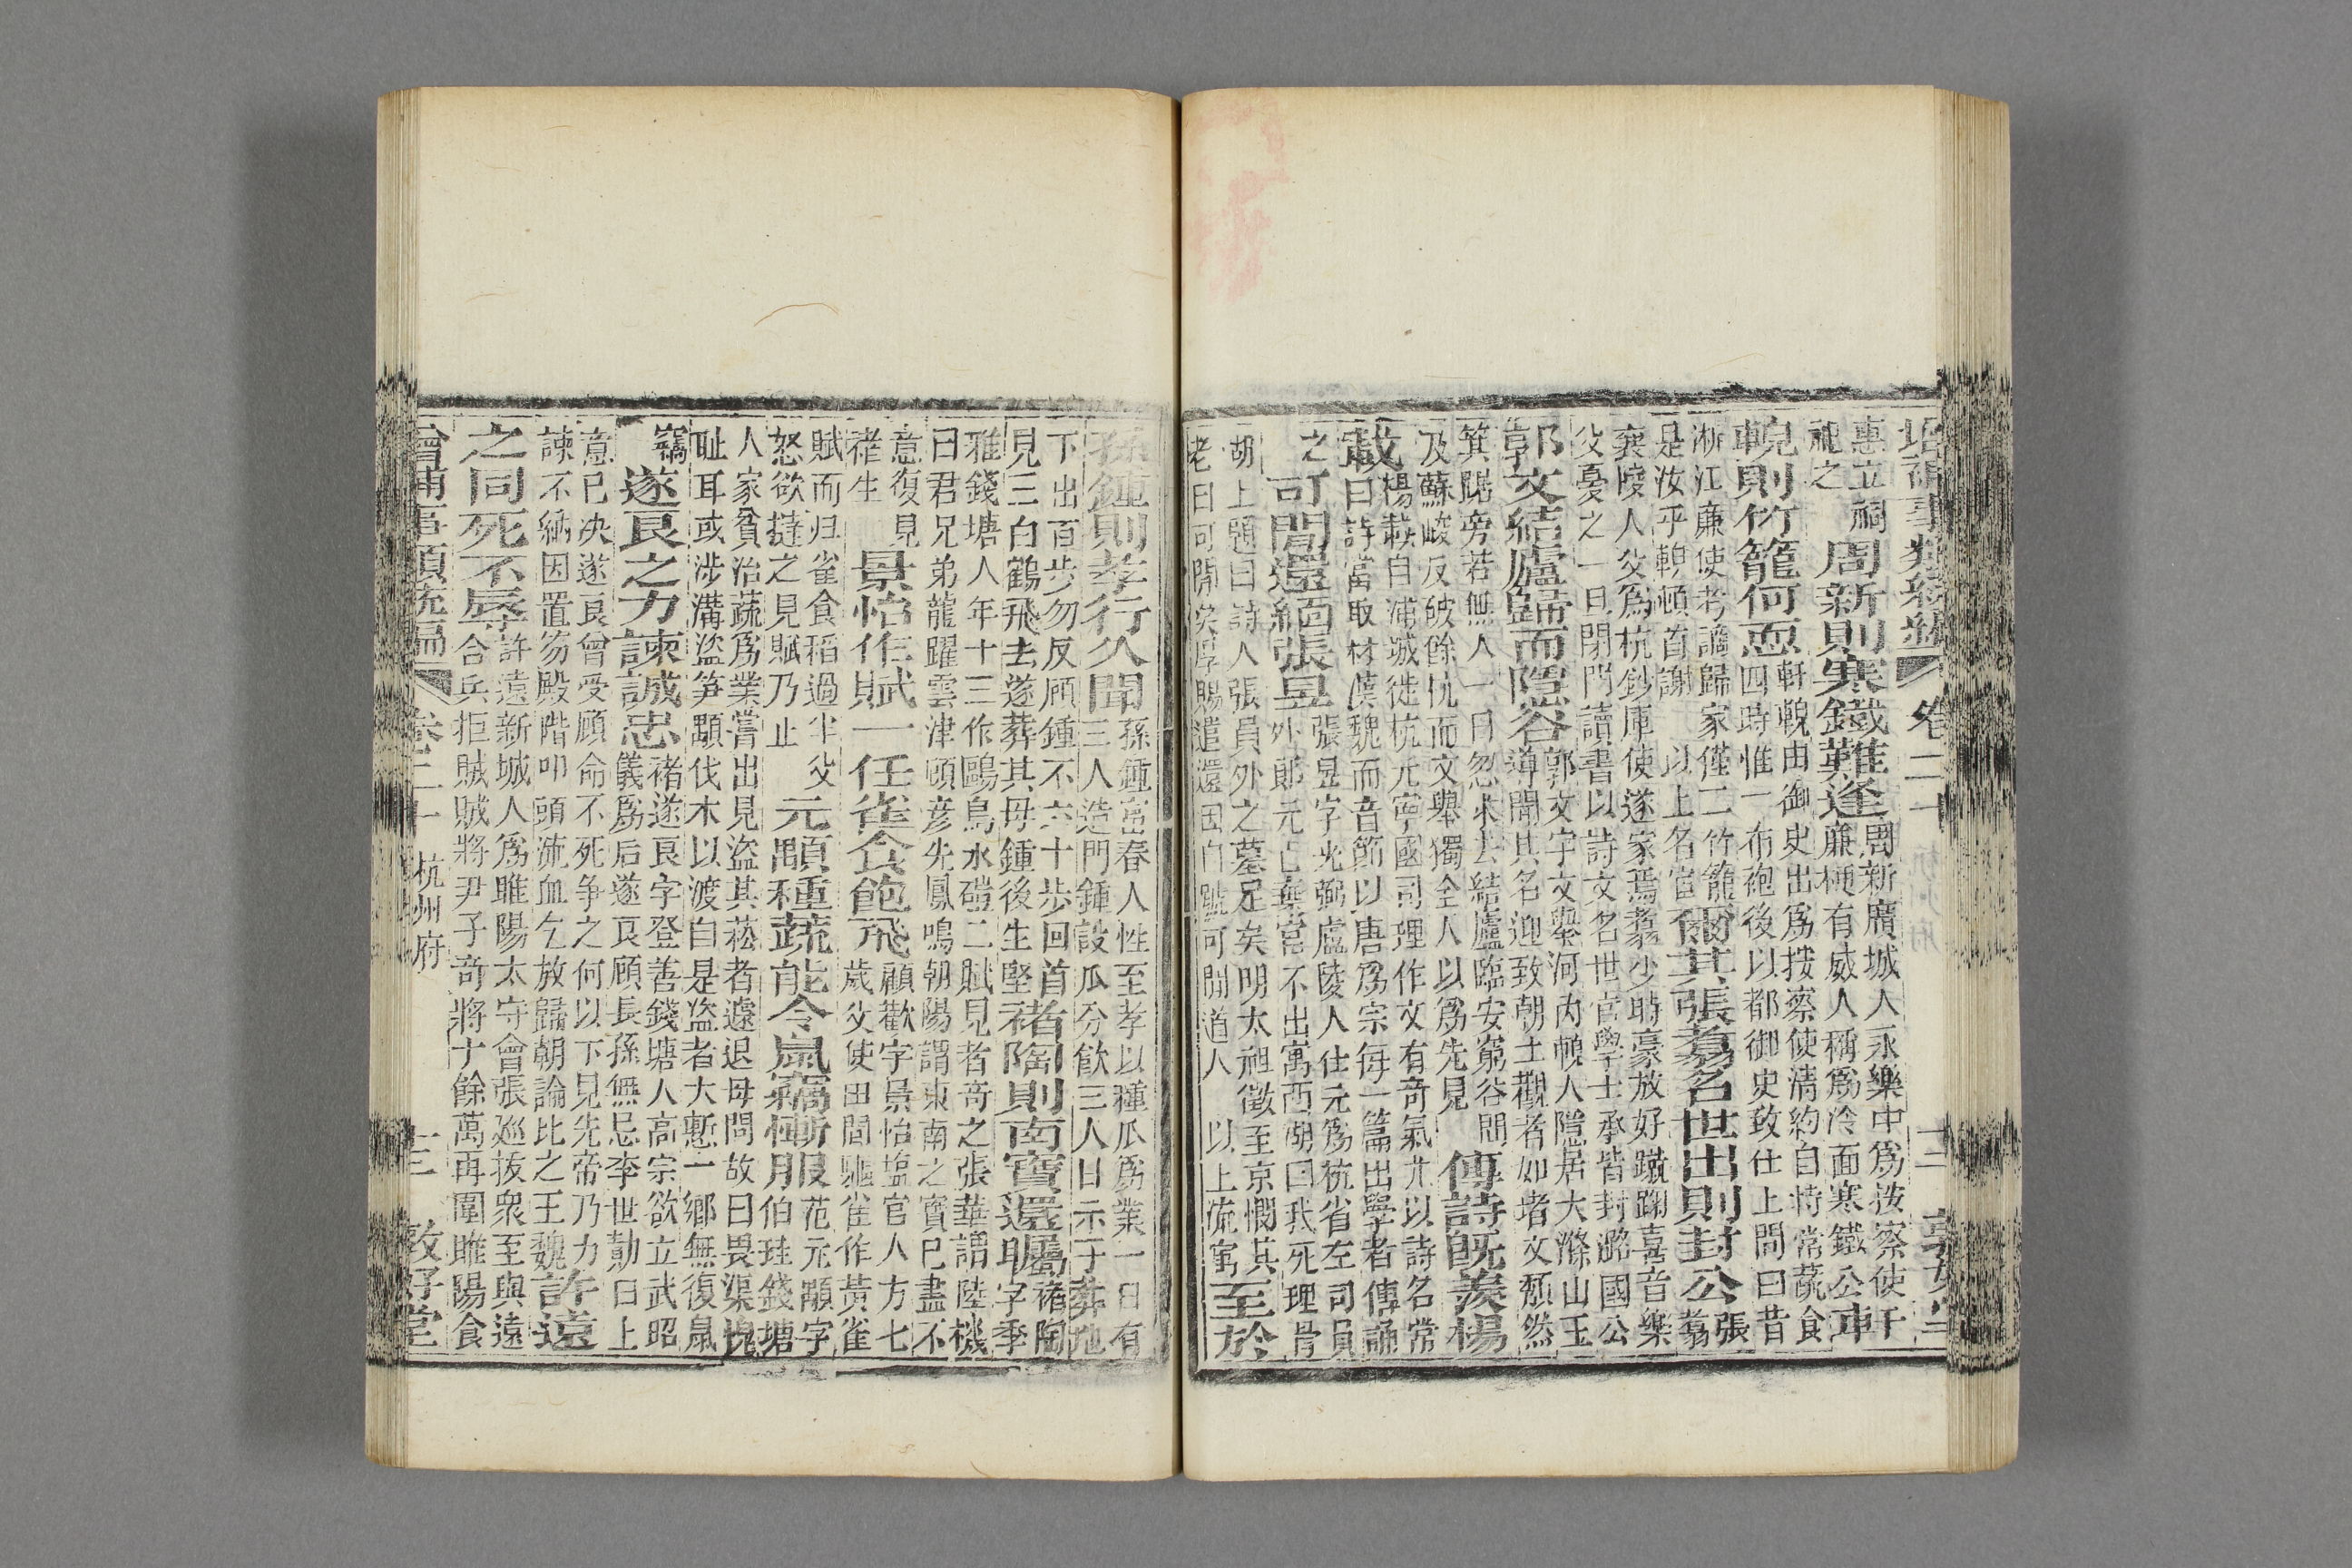 增補事類統編 卷二十 杭州府 十三 敦好堂
惠立祠
祀之
周新則寒鐵難逢
周新廣城人永樂中爲按察使
廉梗有威人稱爲冷面寒鐵公
軒
輗則竹籠何恧
軒輗由御史出爲按察使清約自持常蔬食
四時惟一布袍後以都御史致仕上問曰昔
浙江廉使考滿歸家僅二竹籠
是汝乎輗頓首謝 以上名宦
爾其張翥名世出則封公
張
翥
襄陵人父爲杭鈔庫使遂家焉翥少時豪放好蹴踘喜音樂
父憂之一旦閉門讀書以詩文名世官學士承旨封潞國公
郭文結廬歸而隱谷
郭文字文舉河內軹人隱居大滌山王
導聞其名迎致朝士觀者如堵文頹然
箕踞旁若無人一日忽求去結廬臨安窮谷間
及蘇峻反破餘杭而文舉獨全人以爲先見
傳詩旣羨楊
載
楊載自浦城徙杭元寧國司理作文有奇氣尤以詩名常
曰詩當取材漢魏而音節以唐爲宗每一篇出學者傳誦
之
可閒還緬張昱
張昱字光弼廬陵人仕元爲杭省左司員
外郎元亡棄官不出寓西湖曰我死埋骨
湖上題曰詩人張員外之墓足矣明太祖徵至京憫其
老曰可閒矣厚賜遣還因自號可閒道人 以上流寓
至於
孫鍾則孝行久聞
孫鍾富春人性至孝以種瓜爲業一日有
三人造門鍾設瓜分飲三人曰示子葬地
下出百步勿反顧鍾不六十步回首
見三白鶴飛去遂葬其母鍾後生堅
褚陶則南寶還矚
褚陶
字季
雅錢塘人年十三作鷗鳥水磑二賦見者奇之張華謂陸機
曰君兄弟龍躍雲津顧彥先鳳鳴朝陽謂東南之寶已盡不
意復見
褚生
景怡作賦一任雀食飽飛
顧歡字景怡鹽官人方七
歲父使田間驅雀作黃雀
賦而归雀食稻過半父
怒欲撻之見賦乃止
元顯種蔬能令鼠竊慚服
范元顯字
伯珪錢塘
人家貧治蔬爲業嘗出見盜其菘者遽退母問故曰畏渠愧
耻耳或涉溝盜笋顯伐木以渡自是盜者大慙一鄉無復鼠
竊
遂良之力諫誠忠
褚遂良字登善錢塘人高宗欲立武昭
儀爲后遂良顧長孫無忌李世勣曰上
意已决遂良曾受顧命不死争之何以下見先帝乃力
諫不納因置笏殿階叩頭流血乞放歸朝論比之王魏
許遠
之同死不辱
許遠新城人爲睢陽太守會張廵拔衆至與遠
合兵拒賊賊將尹子奇將十餘萬再圍睢陽食
增補事類統編 卷二十 杭州府 十三 敦好堂